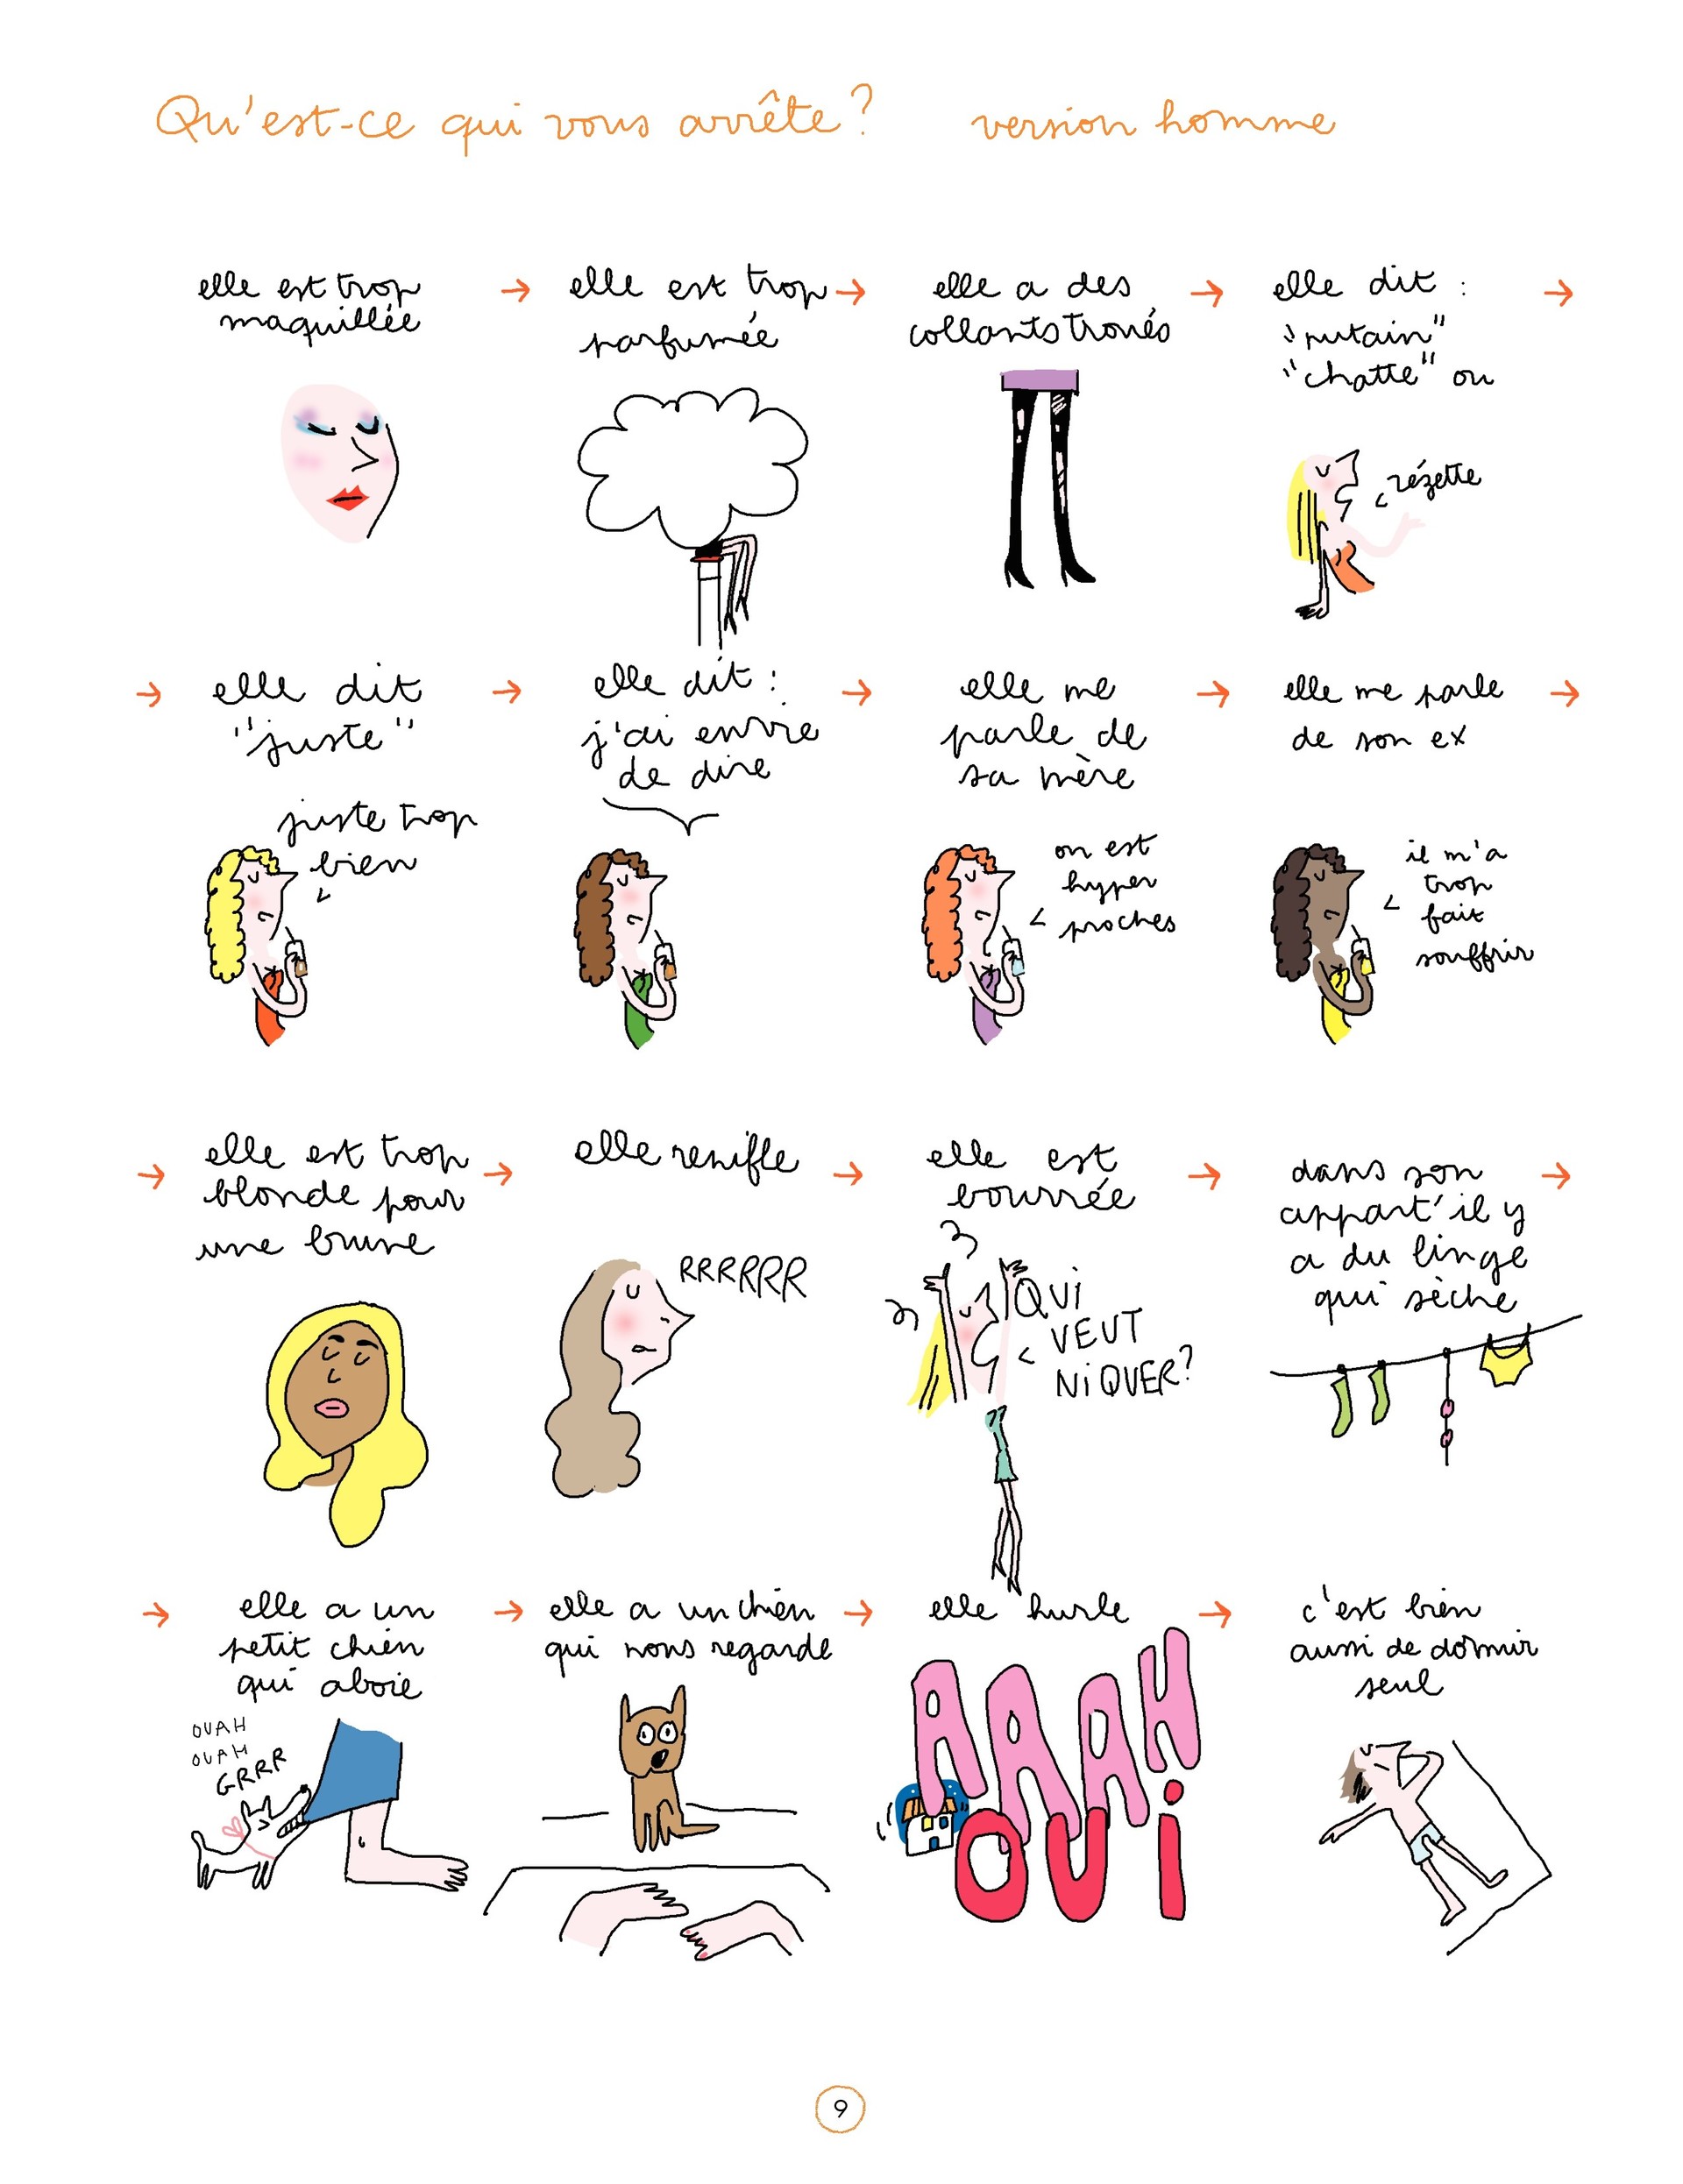 Qu'est-ce qui vous arrête? version homme
elle est trop
maquillée
→ elle est trop
parfumée
→ elle a des
collants troués
→ elle dit :
"putain"
"chatte" ou
zézette
→
→ elle dit
"juste"
juste trop
bien
→ elle dit :
j'ai envie
de dire
→ elle me
parle de
sa mère
on est
hyper
proches
→ elle me parle
de son ex
il m'a
trop
fait
souffrir
→
→ elle est trop
blonde pour
une brune
→ elle renifle
RRRRRR
→ elle est
bourrée
QUI
VEUT
NIQUER?
→ dans son
appart' il y
a du linge
qui sèche
→
→ elle a un
petit chien
qui aboie
OUAH
OUAH
GRRR
→ elle a un chien
qui nous regarde
→ elle hurle
AAAH
OUi
→ c'est bien
aussi de dormir
seul
9